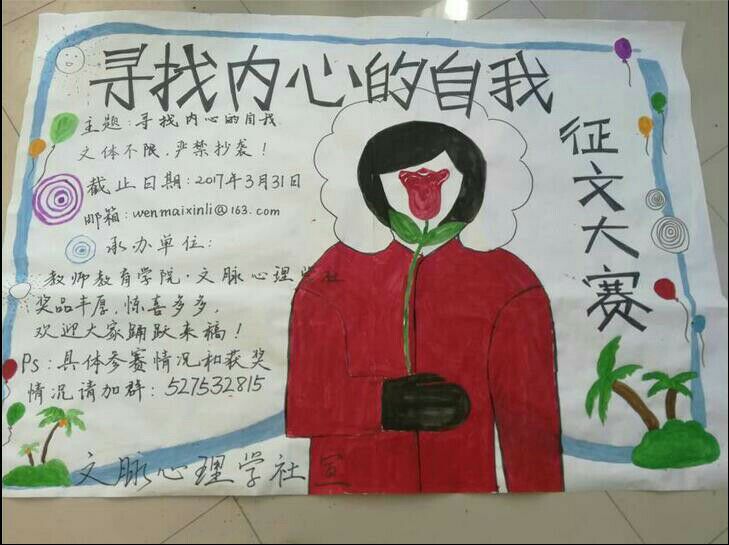 寻找内心的自我
征文大赛
主题:寻找内心的自我
文体不限,严禁抄袭!
截止日期:2017年3月31日
邮箱:wenmaixinli@163.com
承办单位:
教师教育学院·文脉心理学社
奖品丰厚,惊喜多多,
欢迎大家踊跃来稿!
Ps:具体参赛情况和获奖
情况请加群:527532815
文脉心理学社宣